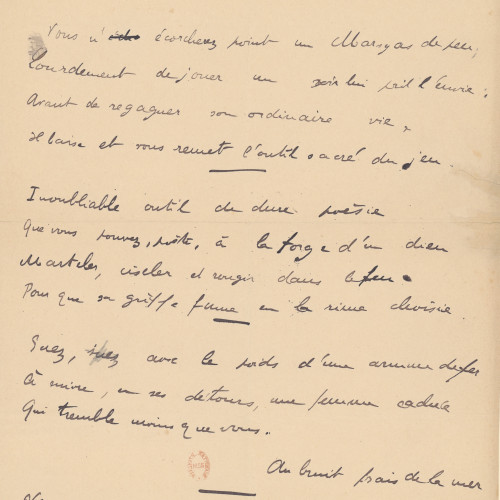 Vous n' écorcherez point un Marsyas de peu,
Lourdement de jouer un soir lui prit l'envie:
Avant de regagner son ordinaire vie,
Il baise et vous remet l'outil sacré du jeu.
Inoubliable outil de dure poésie
Que vous pouvez, poète, à la forge d'un dieu
Marteler, ciseler et rougir dans le feu.
Pour que sa griffe fume en la rime choisie.
avec le poids d'une armure de fer
À suivre, en ses détours, une femme cadrée
Qui tremble moins que vous.
Au bruit frais de la mer